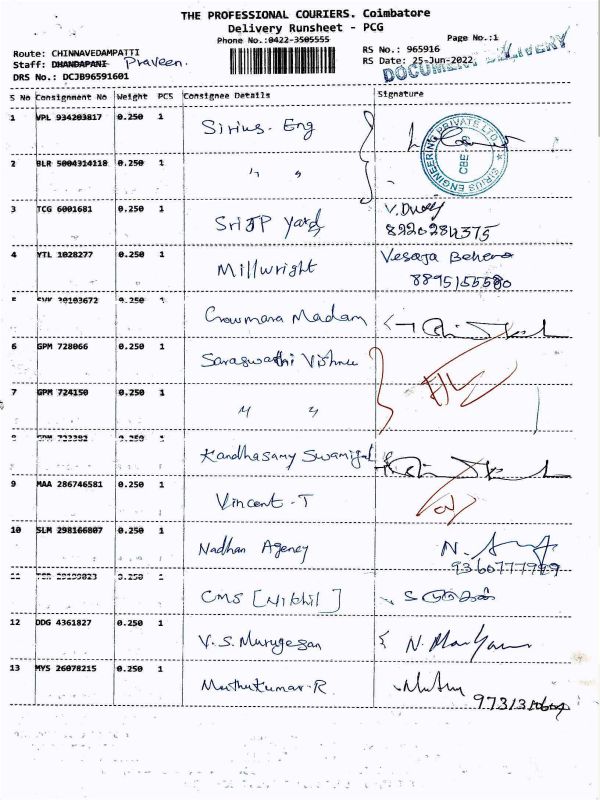 THE PROFESSIONAL COURIERS. Coimbatore
Delivery Runsheet - PCG
Phone No.:0422-3505555
Page No.:1
Route: CHINNAVEDAMPATTI
RS No.: 965916
Staff: DHANDAPANI Praveen.
RS Date: 25-Jun-2022
DOCUMENT DELIVERY
DRS No.: DCJB96591601
S No Consignment No Weight PCS Consignee Details Signature
1 VPL 934203817 0.250 1 Sirius. Eng
SIRIUS ENGINEERING PRIVATE LTD
CBE
2 BLR 5004314118 0.250 1 " "
3 TCG 6001681 0.250 1 Sri JP Yard
8220284375
4 YTL 1028277 0.250 1 Millwright Vesaja Behera
8895155580
5 SVK 30103672 0.250 1 Gowmara Madam
6 GPM 728066 0.250 1 Saraswathi Vishnu
7 GPM 724150 0.250 1 " "
8 GPM 0.250 1 Kandhasamy Swamigal
9 MAA 286746581 0.250 1 Vincent - T
10 SLM 298166807 0.250 1 Nadhan Agency N.
0.250 1 CMS [Nikhil]
12 DDG 4361827 0.250 1 V. S. Murugesan
13 MYS 26078215 0.250 1 Muthukumar-R